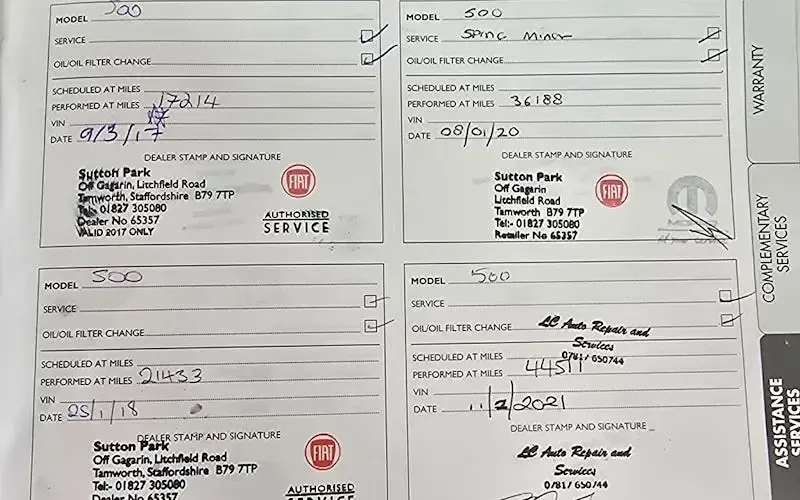 MODEL 500
SERVICE
OIL/OIL FILTER CHANGE
SCHEDULED AT MILES
PERFORMED AT MILES 17214
VIN
DATE 9/3/17
DEALER STAMP AND SIGNATURE
Sutton Park
Off Gagarin, Litchfield Road
Tamworth, Staffordshire B79 7TP
Tel:- 01827 305080
Dealer No 65357
VALID 2017 ONLY
FIAT
AUTHORISED
SERVICE
MODEL 500
SERVICE
OIL/OIL FILTER CHANGE
SCHEDULED AT MILES
PERFORMED AT MILES 36188
VIN
DATE 08/01/20
DEALER STAMP AND SIGNATURE
Sutton Park
Off Gagarin
Litchfield Road
Tamworth B79 7TP
Tel:- 01827 305080
Retailer No 65357
FIAT
MODEL 500
SERVICE
OIL/OIL FILTER CHANGE
SCHEDULED AT MILES
PERFORMED AT MILES 21433
VIN
DATE 25/1/18
DEALER STAMP AND SIGNATURE
Sutton Park
Off Gagarin, Litchfield Road
Tamworth, Staffordshire B79 7TP
Tel:- 01827 305080
Dealer No 65357
FIAT
AUTHORISED
SERVICE
MODEL 500
SERVICE
OIL/OIL FILTER CHANGE
LC Auto Repair and
Services
0781/650744
SCHEDULED AT MILES
PERFORMED AT MILES 44511
VIN
DATE 11/2/2021
DEALER STAMP AND SIGNATURE
LC Auto Repair and
Services
0781/650744
WARRANTY
COMPLEMENTARY
SERVICES
ASSISTANCE
SERVICES